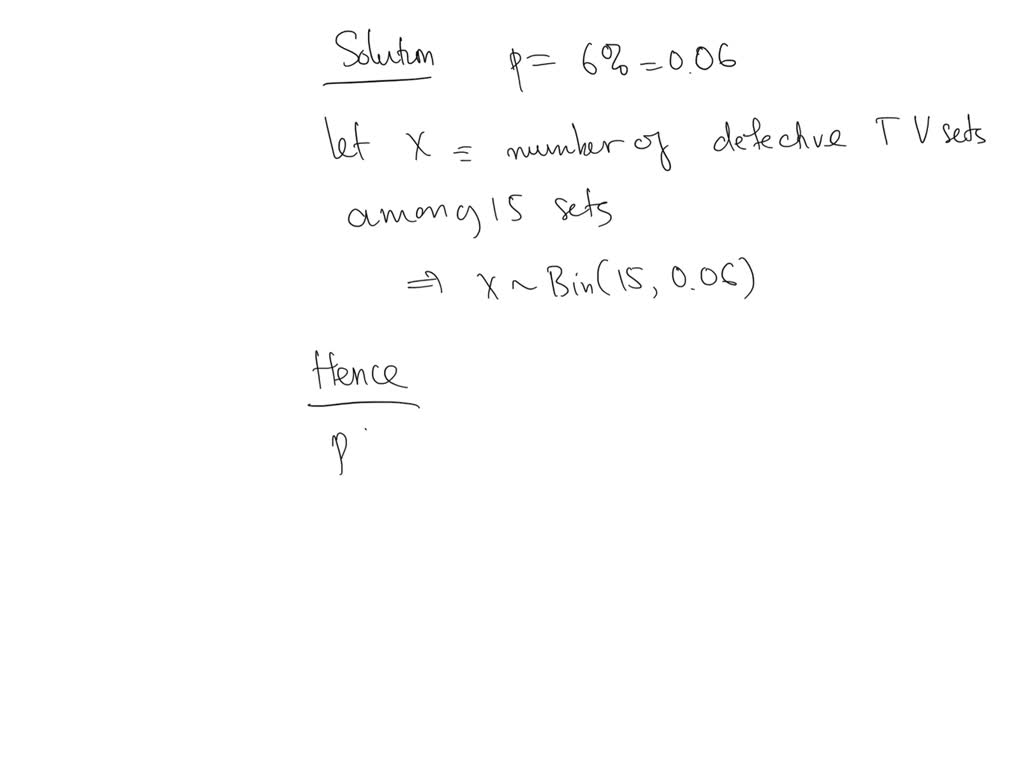 Solution p = 6% = 0.06
let X = number of defective TV sets
among 15 sets
⇒ X ~ Bin(15, 0.06)
Hence
P